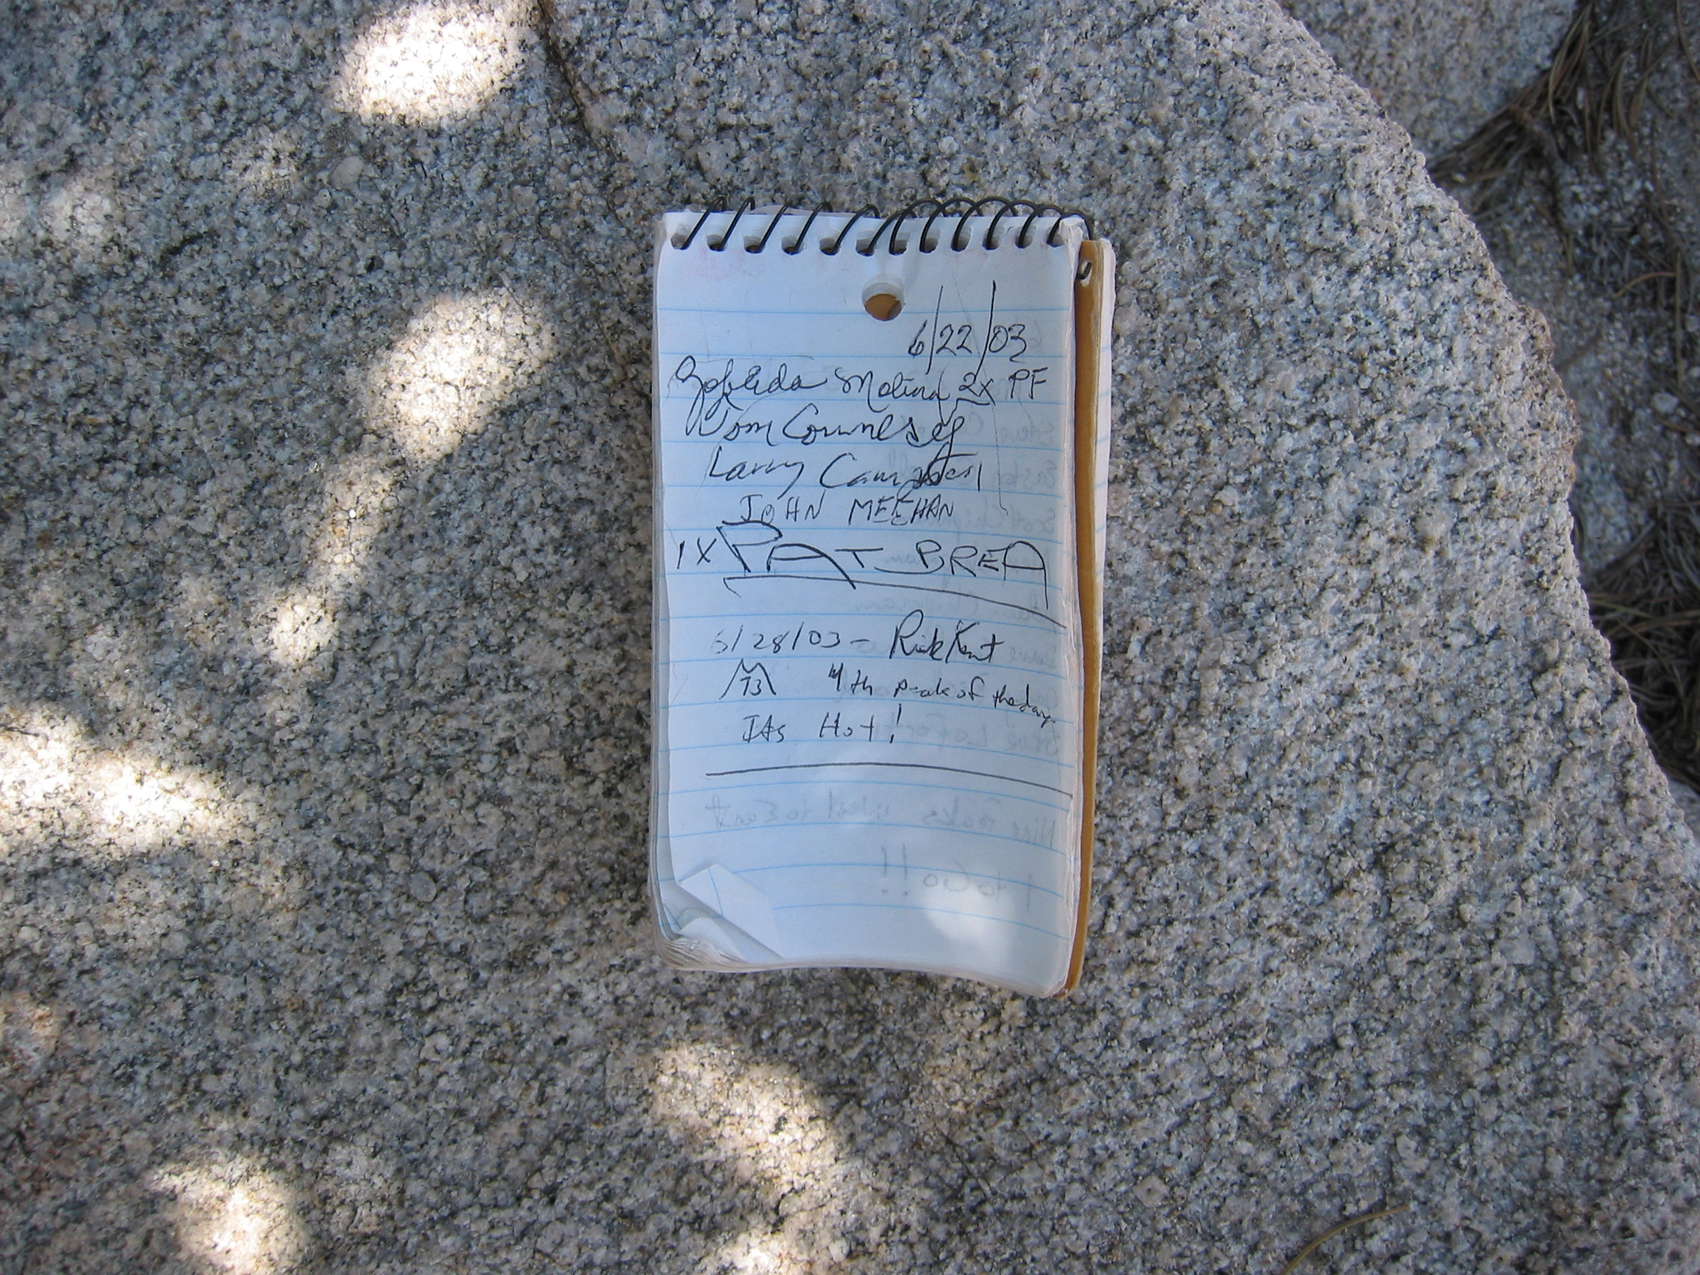 6/22/03
Zobeida Molina 2x PF
Tom Connelly
Larry Campbell
JOHN MEEHAN
1X PAT BREA
6/28/03 - Rick Kent
4th peak of the day.
Its Hot!